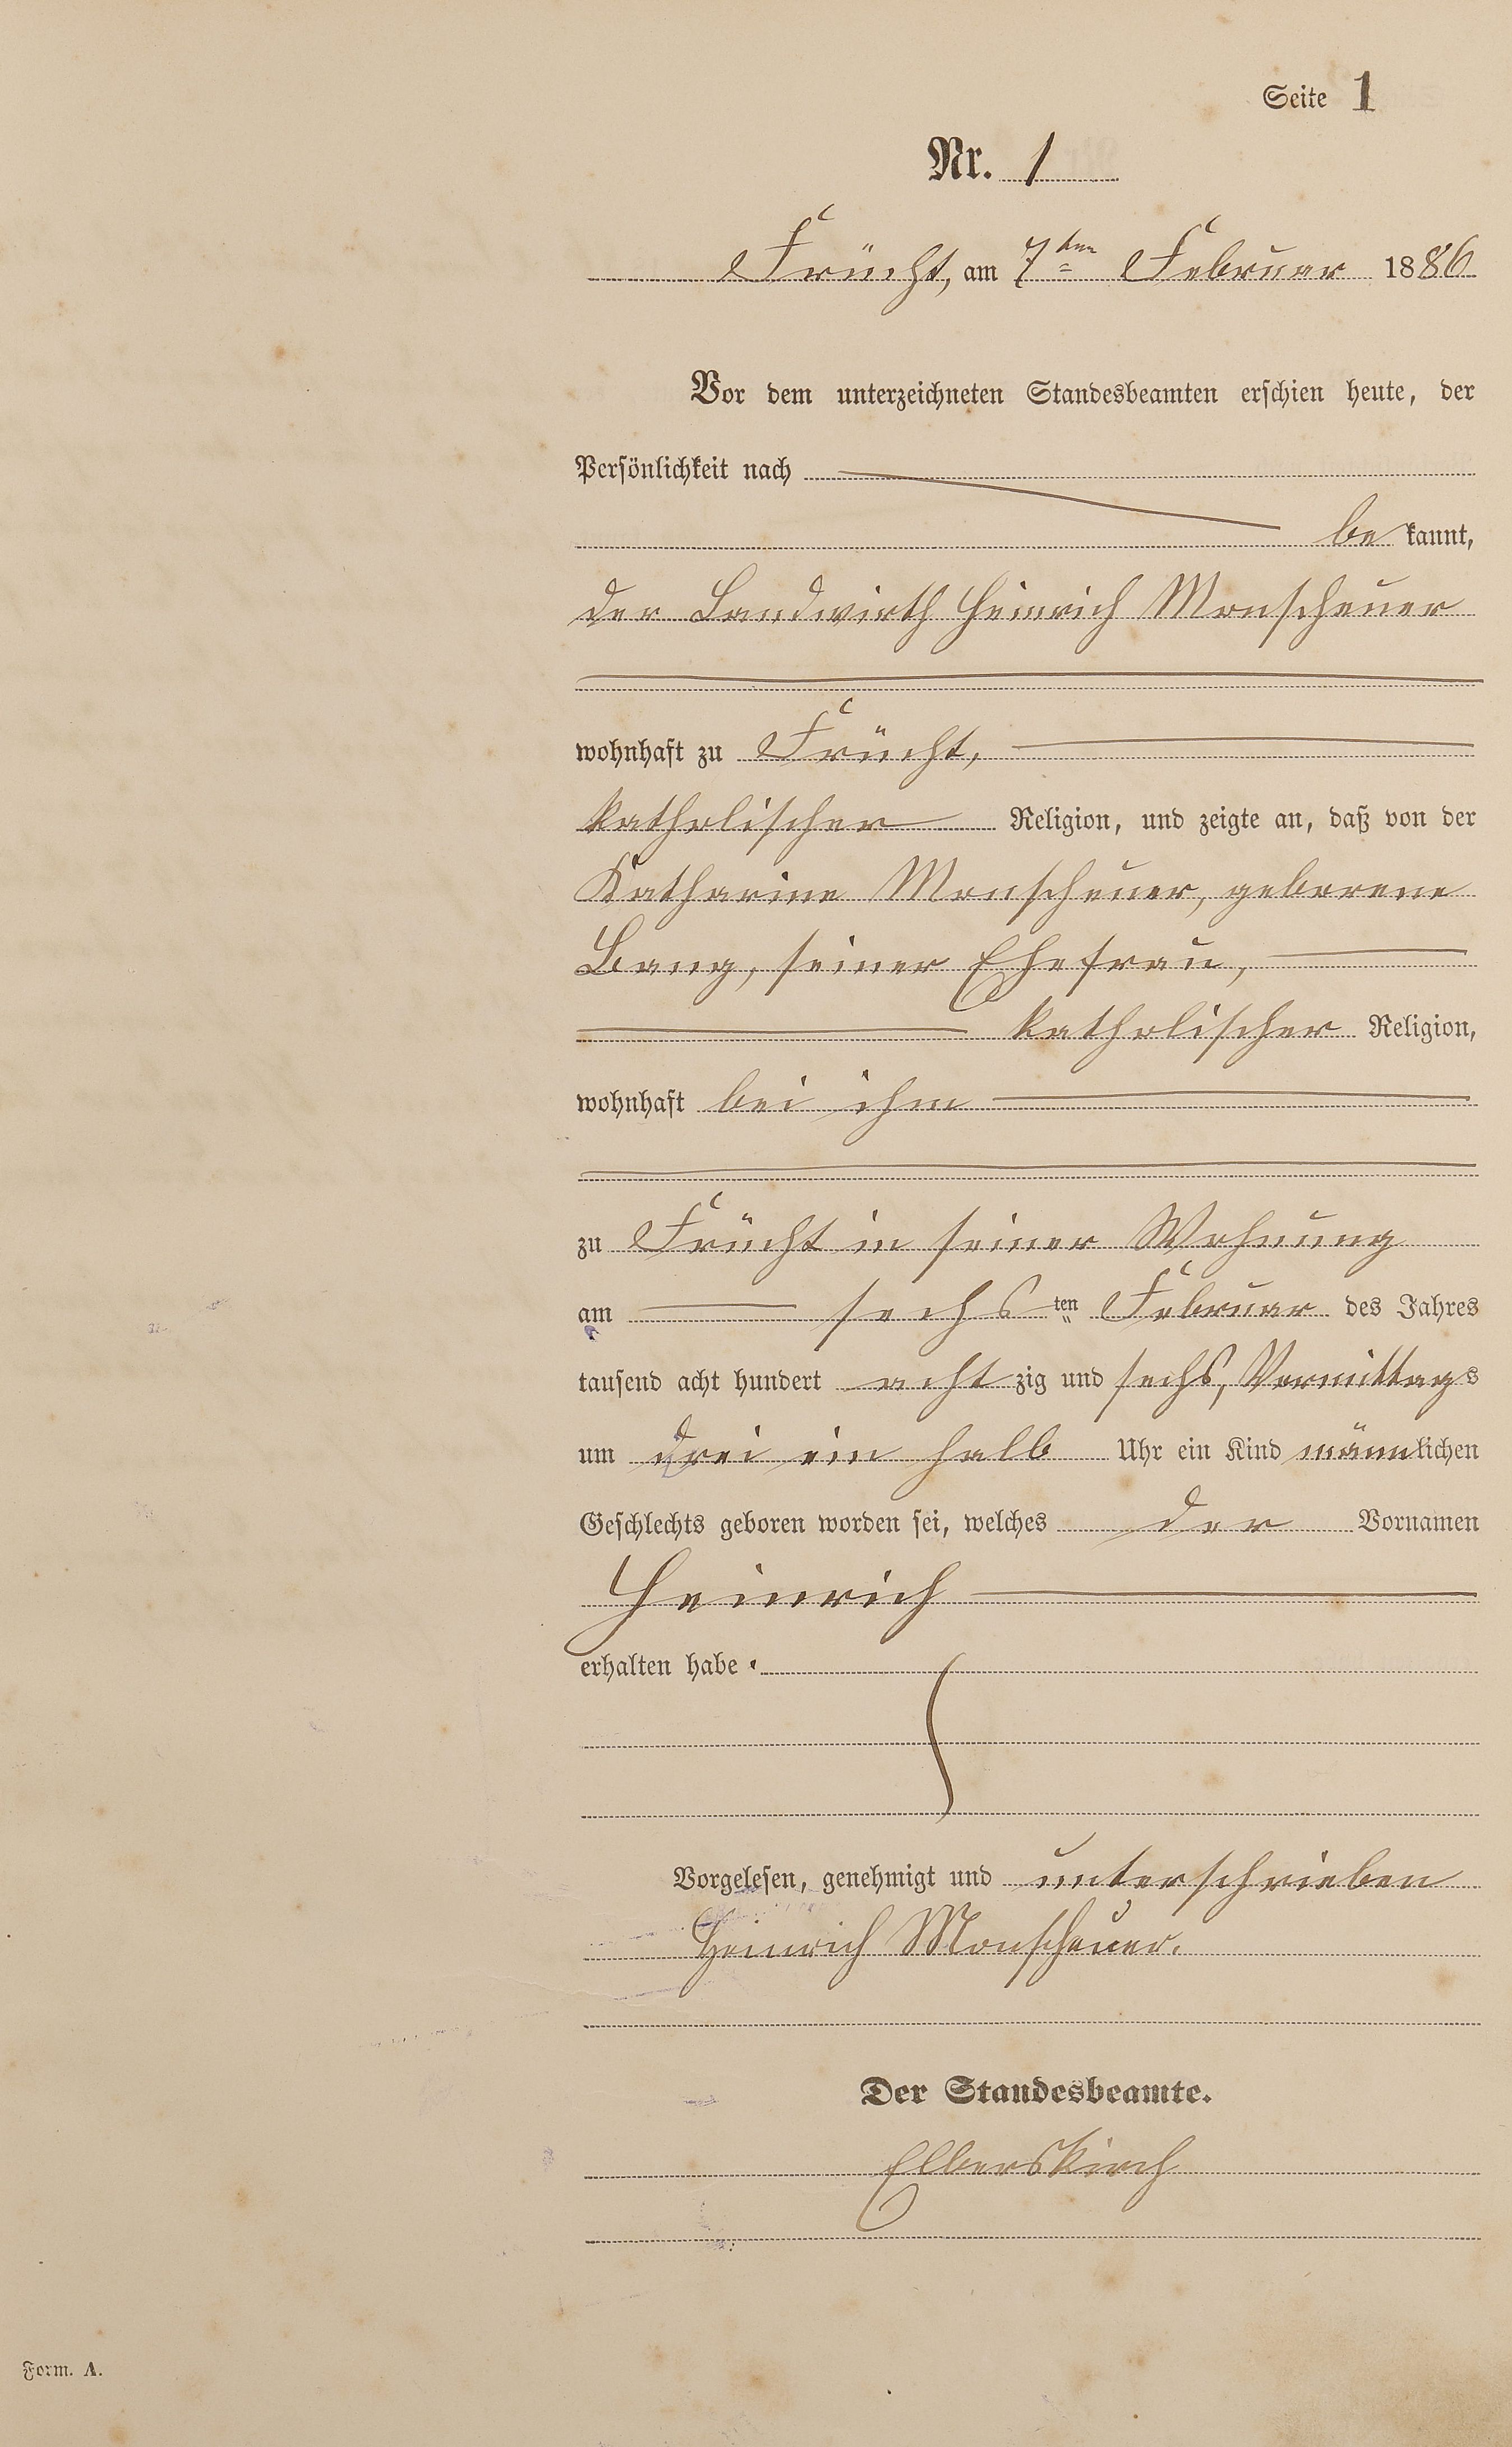 Seite 1
Nr. 1
Frücht, am 7ten Februar 1886
Vor dem unterzeichneten Standesbeamten erschien heute, der
Persönlichkeit nach
be kannt,
der Landwirth Heinrich Monscheuer
wohnhaft zu Frücht,
katholischer Religion, und zeigte an, daß von der
Katharine Monscheuer, geborene
Bang, seiner Ehefrau,
katholischer Religion,
wohnhaft bei ihm
zu Frücht in seiner Wohnung
am sechs ten Februar des Jahres
tausend acht hundert acht zig und sechs, Vormittags
um drei ein halb Uhr ein Kind männlichen
Geschlechts geboren worden sei, welches der Vornamen
Heinrich
erhalten habe.
Vorgelesen, genehmigt und unterschrieben
Heinrich Monscheuer.
Der Standesbeamte.
Elberskirch
Form. A.